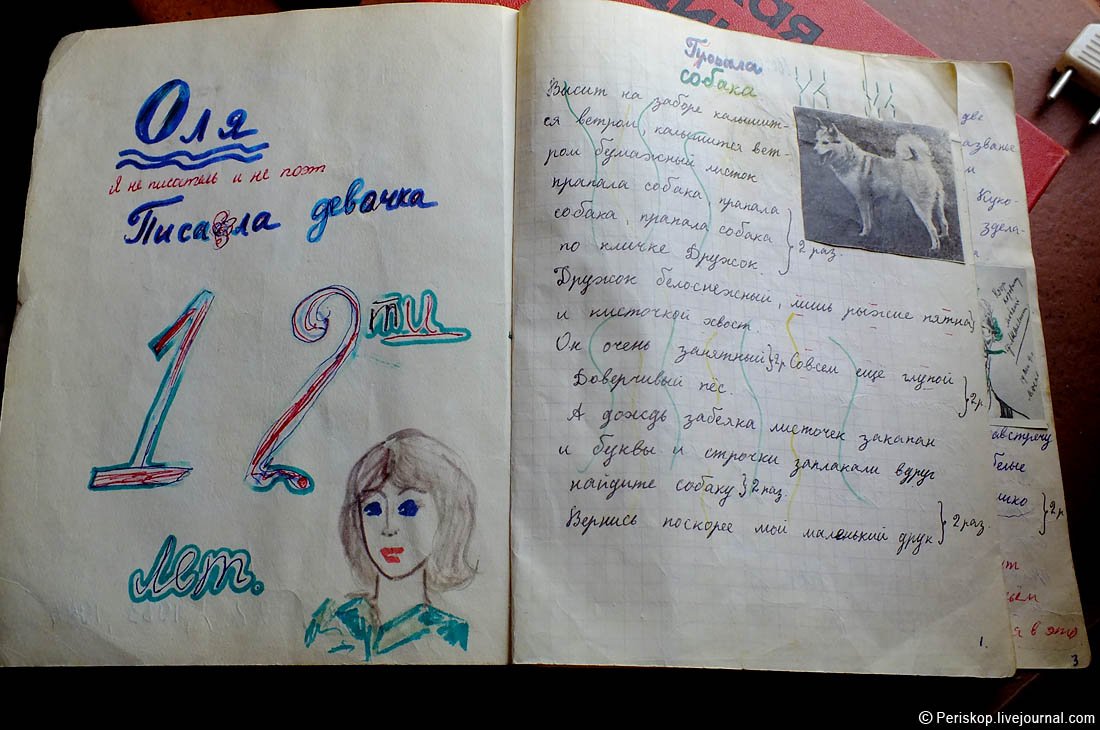 Оля
Я не писатель и не поэт
Писала девачка
12ти
лет.
Пропала
собака
Висит на заборе калышит-
ся ветром, калышится вет-
ром бумажный листок
прапала собака прапала
собака, прапала собака
по кличке Дружок. } 2 раз.
Дружок белоснежный, лишь рыжие пятна}
и кисточкой хвост.
Он очень занятный}2р Совсем ещё глупой
Доверчивый пёс. }2р.
А дождь забеяка листочек закапан
и буквы и строчки заплакали вдруг
найдите собаку}2 раз.
Вернись поскорее мой маленький друк } 2 раз.
1.
две
азванье
Куко-
здела-
а
австречу
белые
шко }2р
ит
я в это
3
© Periskop.livejournal.com